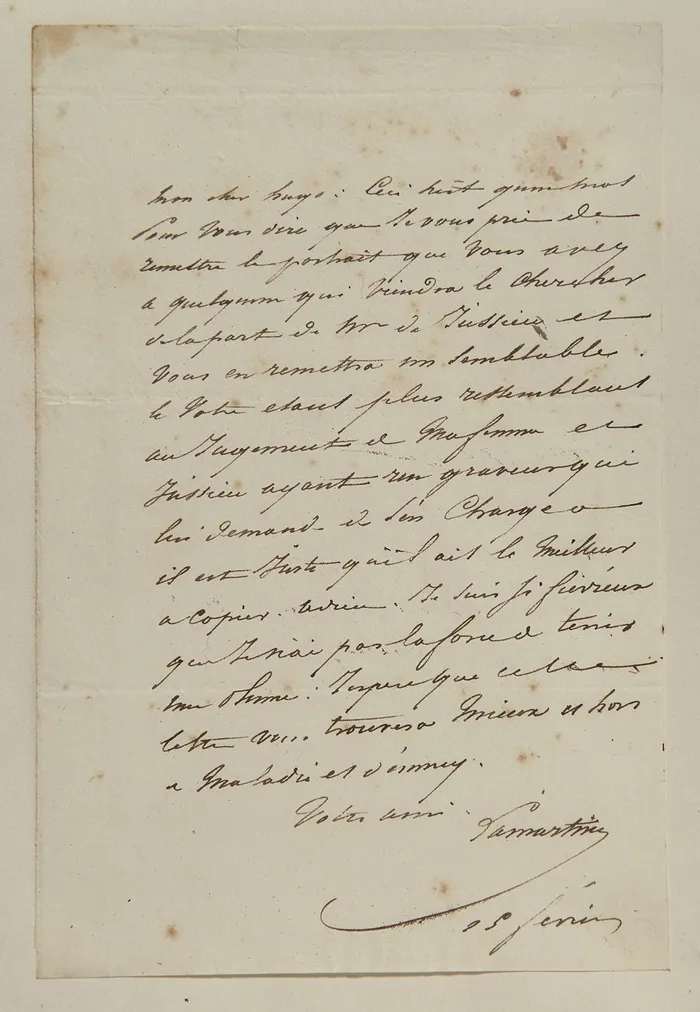 mon cher hugo : Ceci n'est qu'un mot
pour Vous dire que Je vous prie de
remettre le portrait que Vous avez
a quelqu'un qui Viendra le chercher
de la part de Mr de Jussieu et
Vous en remettra un Semblable.
le Votre etant plus ressemblant
au Jugement de Ma femme et
Jussieu ayant un graveur qui
lui demande de s'en Charger
il est Juste qu'il ait le Meilleur
a copier. adieu. Je suis si fiévreux
que Je n'ai pas la force de tenir
une plume : J'espere que cette
lettre vous trouvera Mieux et hors
de Maladie et d'ennuy.
Votre ami.
Lamartine
février